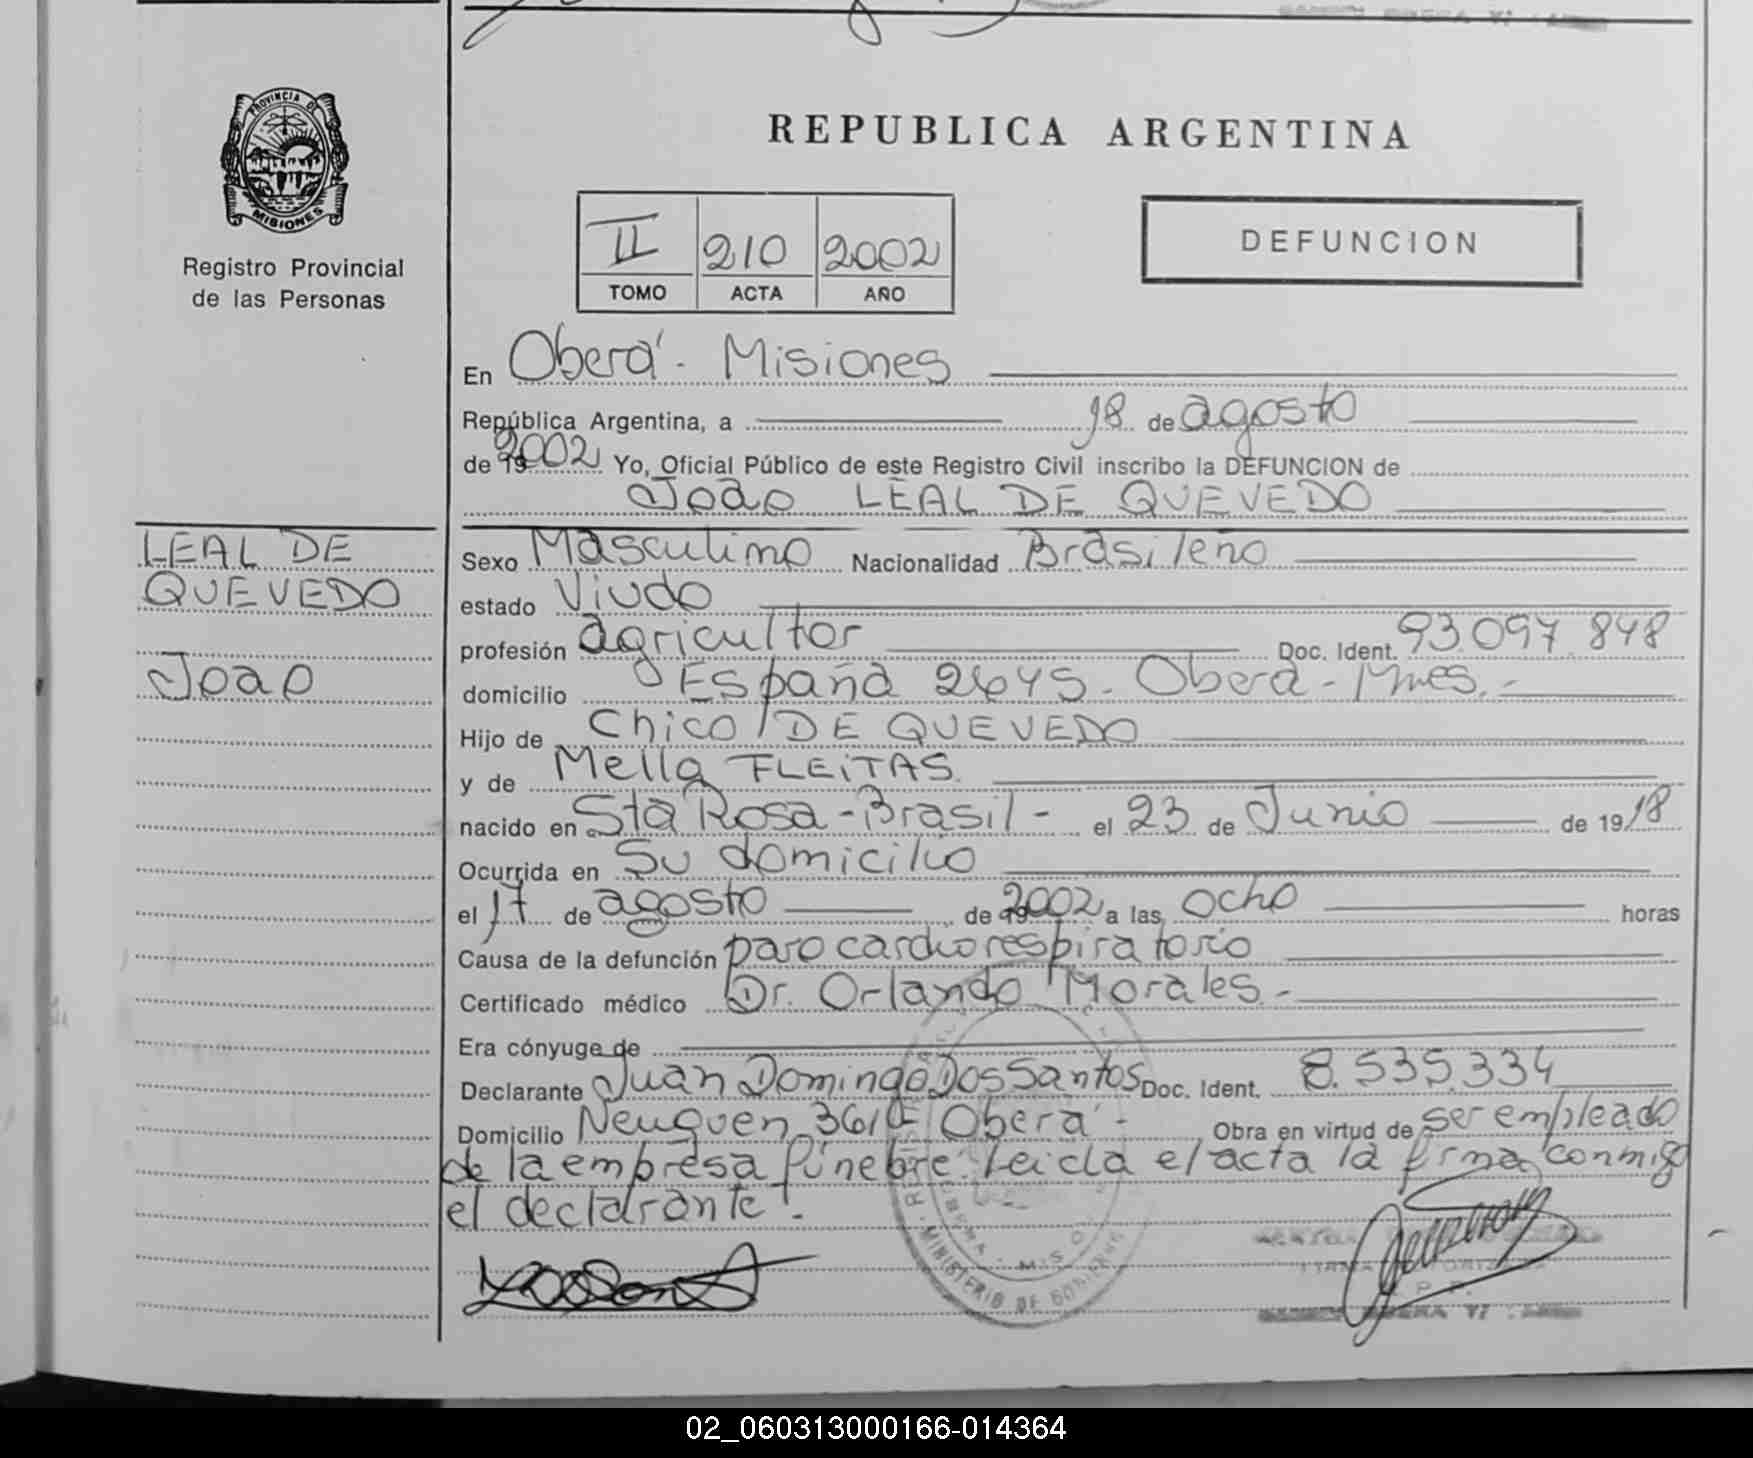 PROVINCIA DE
MISIONES
Registro Provincial
de las Personas
REPUBLICA ARGENTINA
II 210 2002
TOMO ACTA AÑO
DEFUNCION
En Oberá - Misiones
República Argentina, a 18 de agosto
de 19 2002 Yo, Oficial Público de este Registro Civil inscribo la DEFUNCION de
Joao LEAL DE QUEVEDO
LEAL DE
QUEVEDO
Joao
Sexo Masculino Nacionalidad Brasileño
estado Viudo
profesión agricultor Doc. Ident. 93.097.848
domicilio España 2645 - Oberá - Mnes. -
Hijo de Chico DE QUEVEDO
y de Mella FLEITAS
nacido en Sta Rosa - Brasil - el 23 de Junio de 1918
Ocurrida en Su domicilio
el 17 de agosto de 19 2002 a las ocho horas
Causa de la defunción paro cardiorespiratorio
Certificado médico Dr. Orlando Morales -
Era cónyuge de
Declarante Juan Domingo Dos Santos Doc. Ident. 8.535.334
Domicilio Neuquen 361 Oberá - Obra en virtud de ser empleado
de la empresa fúnebre. Leida el acta la firma conmigo
el declarante.
MINISTERIO DE GOBIERNO
02_060313000166-014364